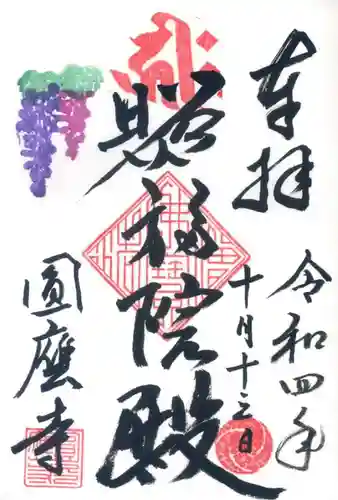 奉拝
令和四年
十月十三日
照福院殿
圓應寺